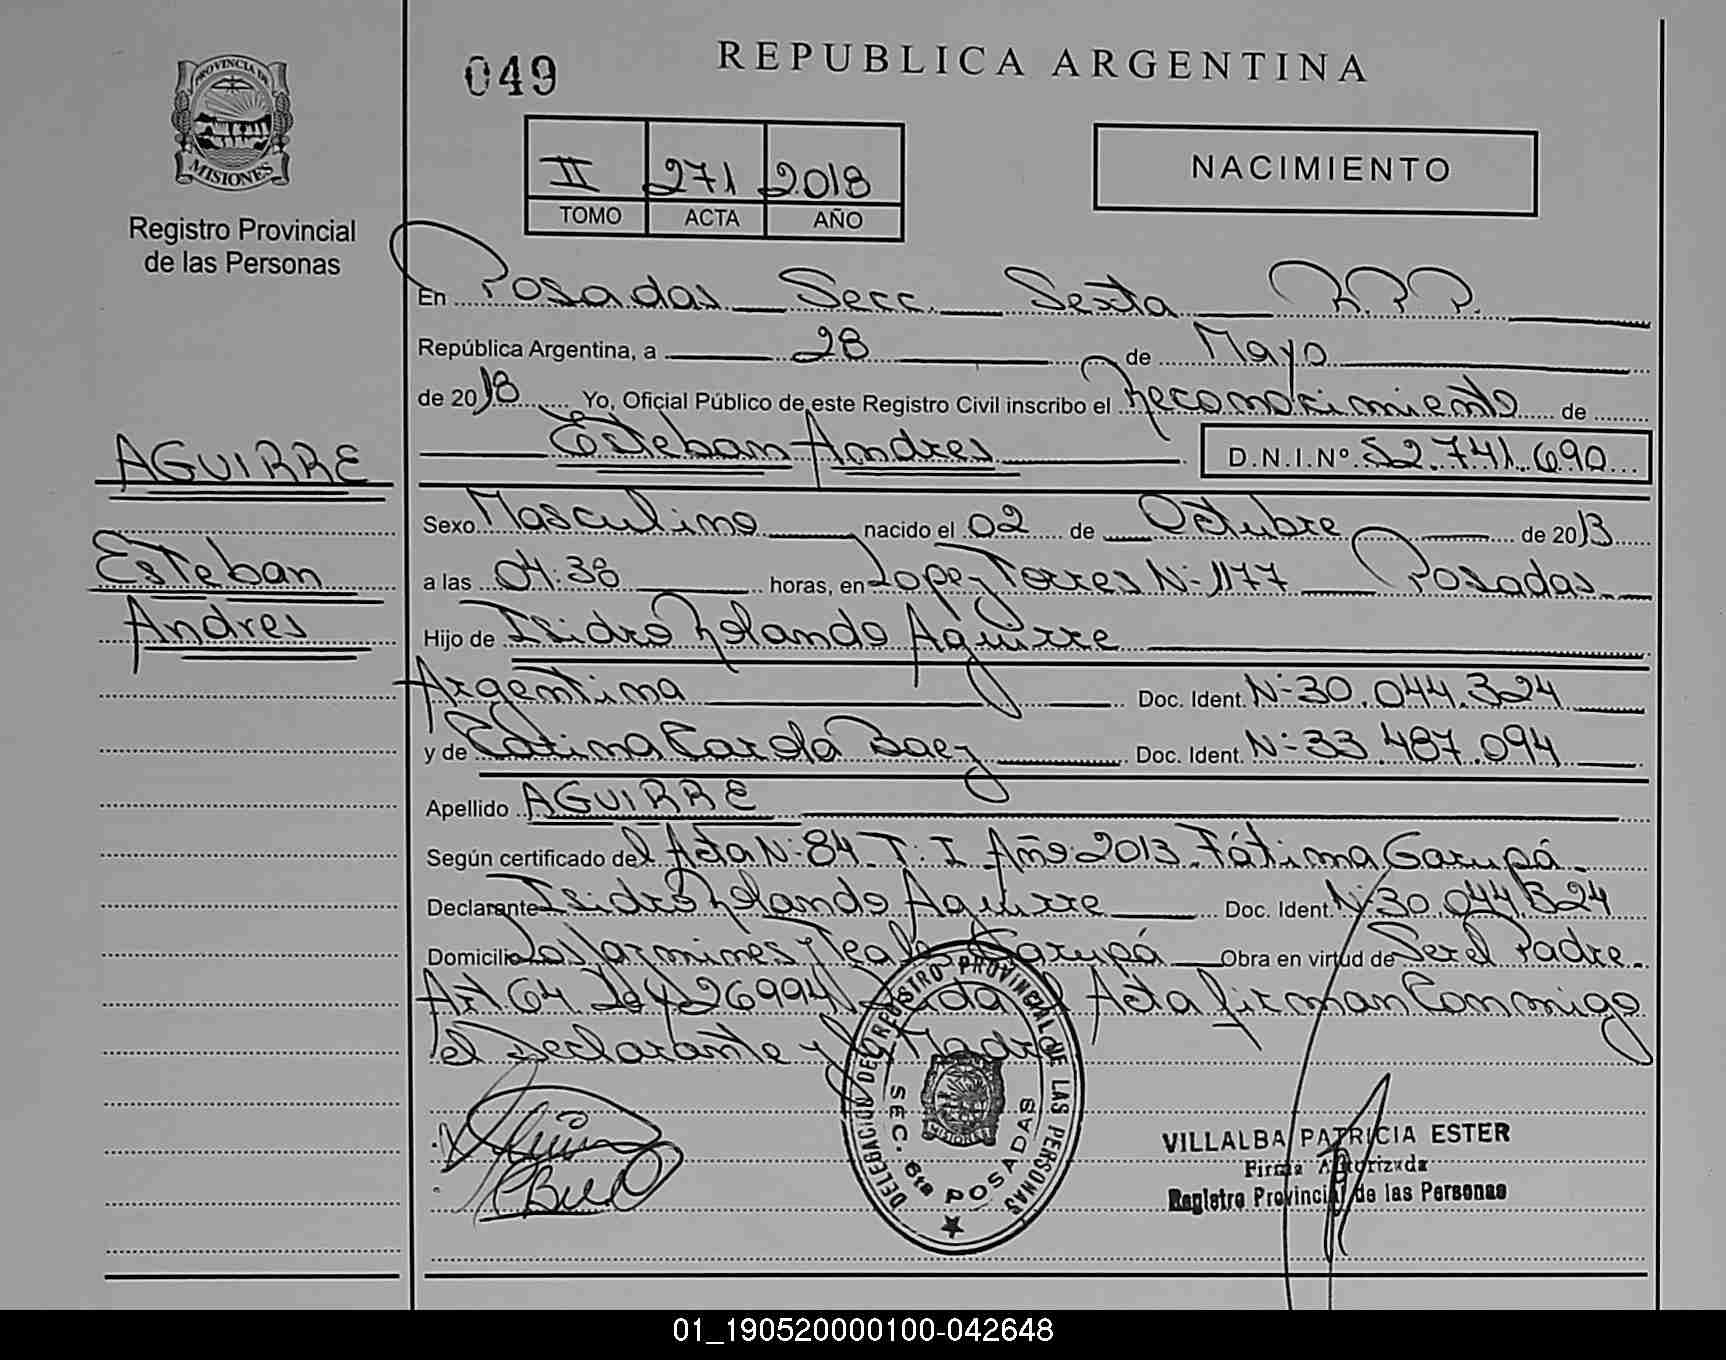 049
REPUBLICA ARGENTINA
PROVINCIA DE
MISIONES
Registro Provincial
de las Personas
II 271 2018
TOMO ACTA AÑO
NACIMIENTO
En Posadas Secc. Sexta R.P.P.
República Argentina, a 28 de Mayo
de 2018 Yo, Oficial Público de este Registro Civil inscribo el Reconocimiento de
Esteban Andres D.N.I.Nº 52.741.690
AGUIRRE
Esteban
Andres
Sexo Masculino nacido el 02 de Octubre de 2013
a las 04:38 horas, en Lopez Torres N: 1177 Posadas
Hijo de Isidro Rolando Aguirre
Argentina Doc. Ident. N: 30.044.324
y de Carla Baez Doc. Ident. N: 33.487.094
Apellido AGUIRRE
Según certificado del Acta N: 84 T: I Año: 2013 Fátima Garupá
Declarante Isidro Rolando Aguirre Doc. Ident. N: 30.044.324
Domicilio Los Jazmines y Garupá Obra en virtud de Ser el Padre
Art 64 26994 Acta firman Conmigo
el Declarante y Madre
DELEGACION DEL REGISTRO PROVINCIAL DE LAS PERSONAS
SEC. 6ta POSADAS
MISIONES
VILLALBA PATRICIA ESTER
Firma Autorizada
Registro Provincial de las Personas
01_190520000100-042648